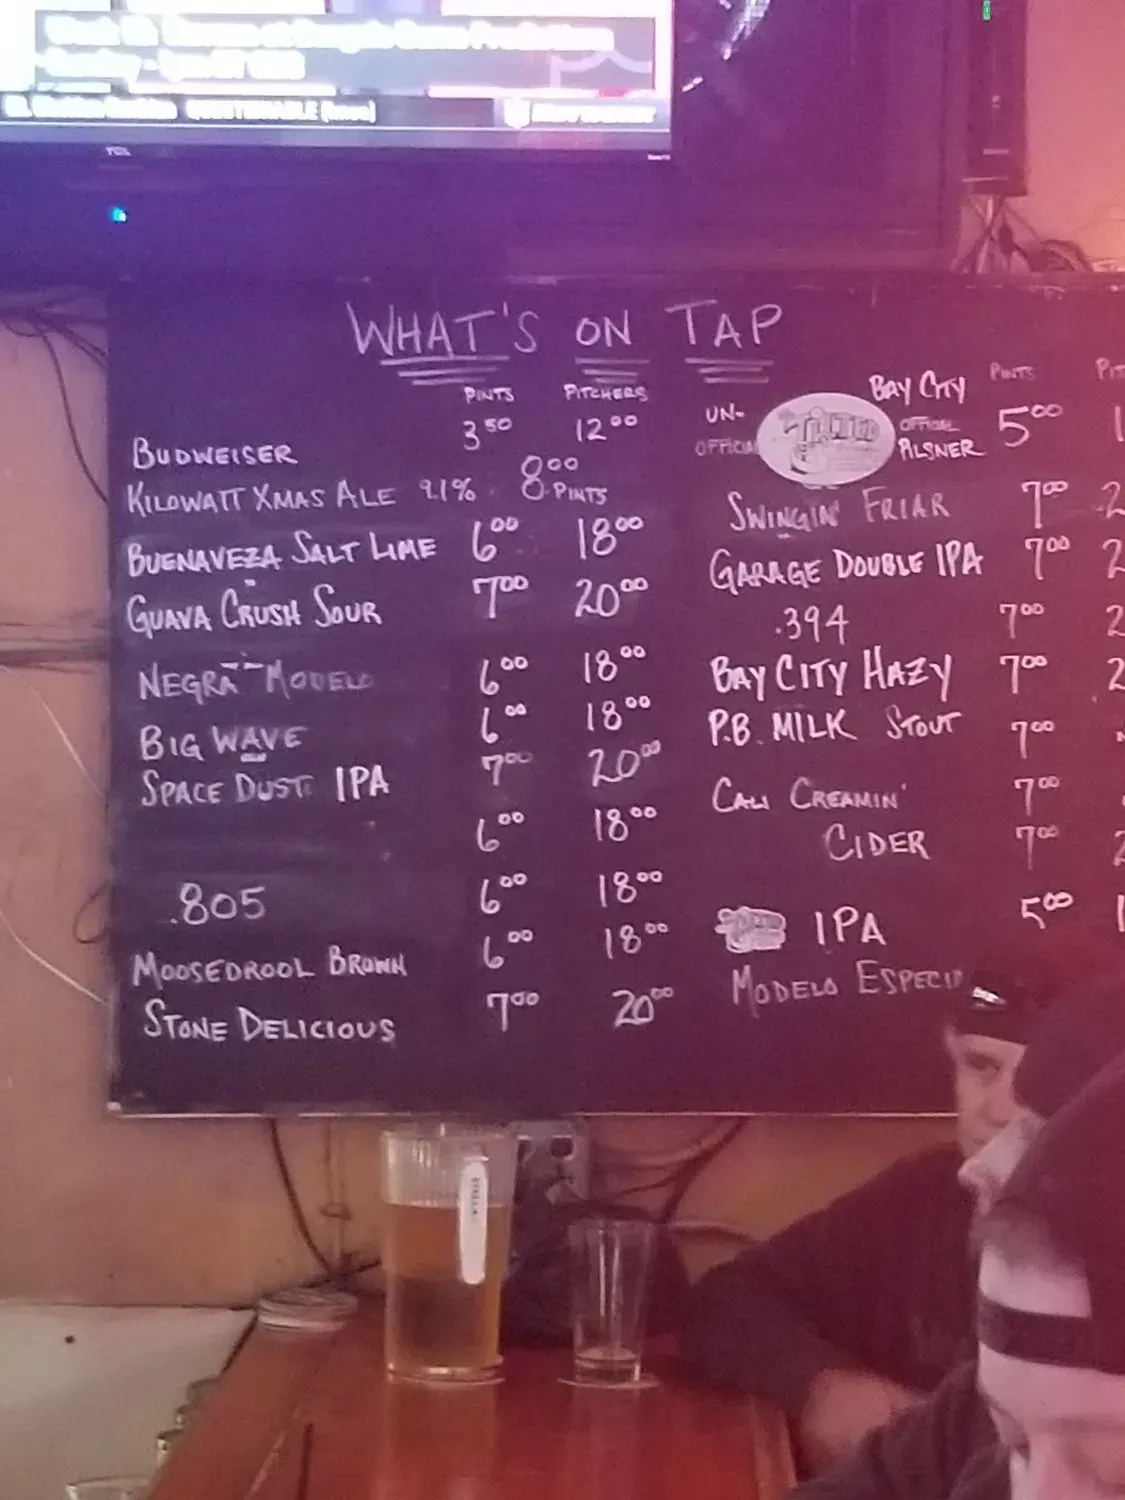 WHAT'S ON TAP
PINTS PITCHERS
BUDWEISER 3 50 12 00
KILOWATT XMAS ALE 9.1% 8 00 PINTS
BUENAVEZA SALT LIME 6 00 18 00
GUAVA CRUSH SOUR 7 00 20 00
NEGRA MODELO 6 00 18 00
BIG WAVE 6 00 18 00
SPACE DUST IPA 7 00 20 00
6 00 18 00
.805 6 00 18 00
MOOSEDROOL BROWN 6 00 18 00
STONE DELICIOUS 7 00 20 00
PINTS PIT
UN-OFFICIAL TILTED BAY CITY OFFICIAL PILSNER 5 00 1
SWINGIN' FRIAR 7 00 2
GARAGE DOUBLE IPA 7 00 2
.394 7 00 2
BAY CITY HAZY 7 00 2
P.B. MILK STOUT 7 00
CALI CREAMIN' 7 00
CIDER 7 00 2
IPA 5 00 1
MODELO ESPECI
TCL